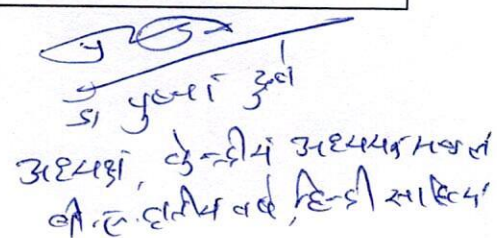 डॉ पुष्पा दुबे
अध्यक्ष, केन्द्रीय अध्ययन मण्डल
बी.ए. तृतीय वर्ष, हिन्दी साहित्य